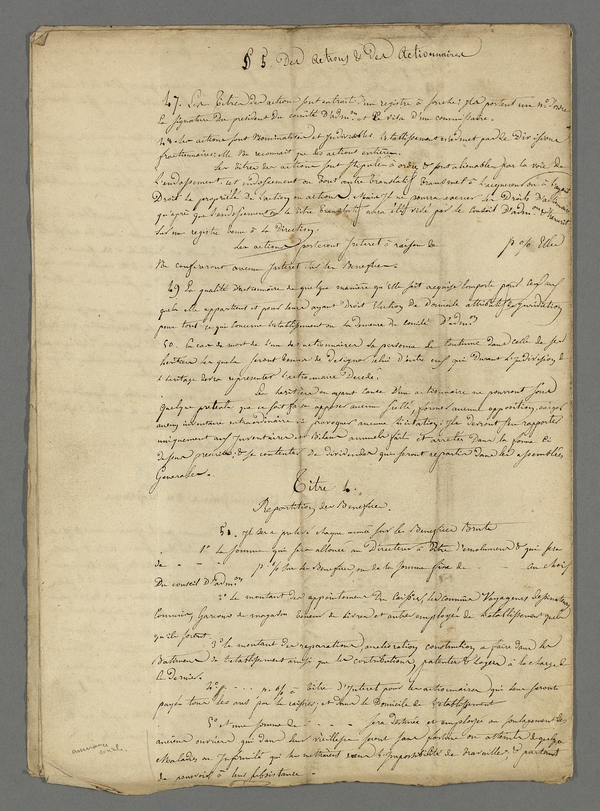 § 5. Des actions & Des Actionnaires
47. Les titres des actions sont extrait d'un registre à souche; ils portent un N.° d'ordre
la signature du president du comité D'adm.on et le visa d'un commissaire.
48 Les actions sont Nominatives et Indivisibles. L'etablissement n'admet pas de Divisions
fractionnaires; Il ne reconnait que les actions entieres.
Les titres des actions sont stipulés à ordre & sont alienables par la voie de
l'endossement. cet endossement ou tout autre translatif transmet à l'acquereur ou à l'ayant
Droit la propriété de l'action ou actions, mais il ne pourra exercer les Droits D'actionnaire
qu'après que l'endossement ou le titre translatif aura été visé par le conseil D'adm.on & transcrit
sur un registre tenu à la Direction.
Les actions porteront Interet à raison de p % Elles
Ne confereront aucun Interet sur les Benefices.
49 La qualité d'actionnaire de quelque manière qu'elle soit acquise emporte pour ceux
à qui elle appartient et pour leurs ayant Droit Election de Domicile attributif de Juridiction
pour tout ce qui concerne l'etablissement en la demeure du comité D'adm.on
50. En cas de mort de l'un des actionnaires la personne se continue dans celle de ses
heritiers lesquels seront tenus de designer celui d'entre eux qui Durant l'indivision de
l'heritage devra representer l'actionnaire Decedé.
Les heritiers ou ayant cause d'un actionnaire ne pourront sous
quelque pretexte que ce soit faire apposer aucun scellé, former aucune opposition, exiger
aucun inventaire extraordinaire ni provoquer aucune licitation; Ils devront s'en rapporter
uniquement aux Inventaires et Bilans annuels faits et arretés dans la forme ci
dessus prescrite; & se contenter des dividendes qui seront repartis dans les assemblées
Generales.
Titre 4.
Repartition des Benefices.
51. Il sera prelevé chaque année sur les Benefices Bruts
1° la somme qui sera allouée au Directeur à titre d'emolument & qui sera
de - - p % sur les Benefices, ou de la somme fixe de - - - au choix
Du conseil D'adm.on
2° le montant des appointemens Du caissier, des commis Voyageurs
commis, Garcons de magasin teneur de livres et autres employés de l'etablissement quels
qu'ils soient.
3° le montant des reparations, amelioration, construction à faire dans les
Batimens de l'etablissement ainsi que les contributions, patentes & loyers à la charge de
ce Dernier.
4° - - - p. % à titre d'Interet pour les actionnaires qui leur seront
payés tous les ans par le caissier, et dans le Domicile de l'etablissement
5° et une somme de - - - - sera destinée et employée au soulagement des
anciens ouvriers qui dans leur vieillesse seront sans fortune ou atteints de quelque
Maladies ou Infirmité qui les mettraient dans l'Impossibilité de travailler & partant
de pourvoir à leur subsistance -
assurance